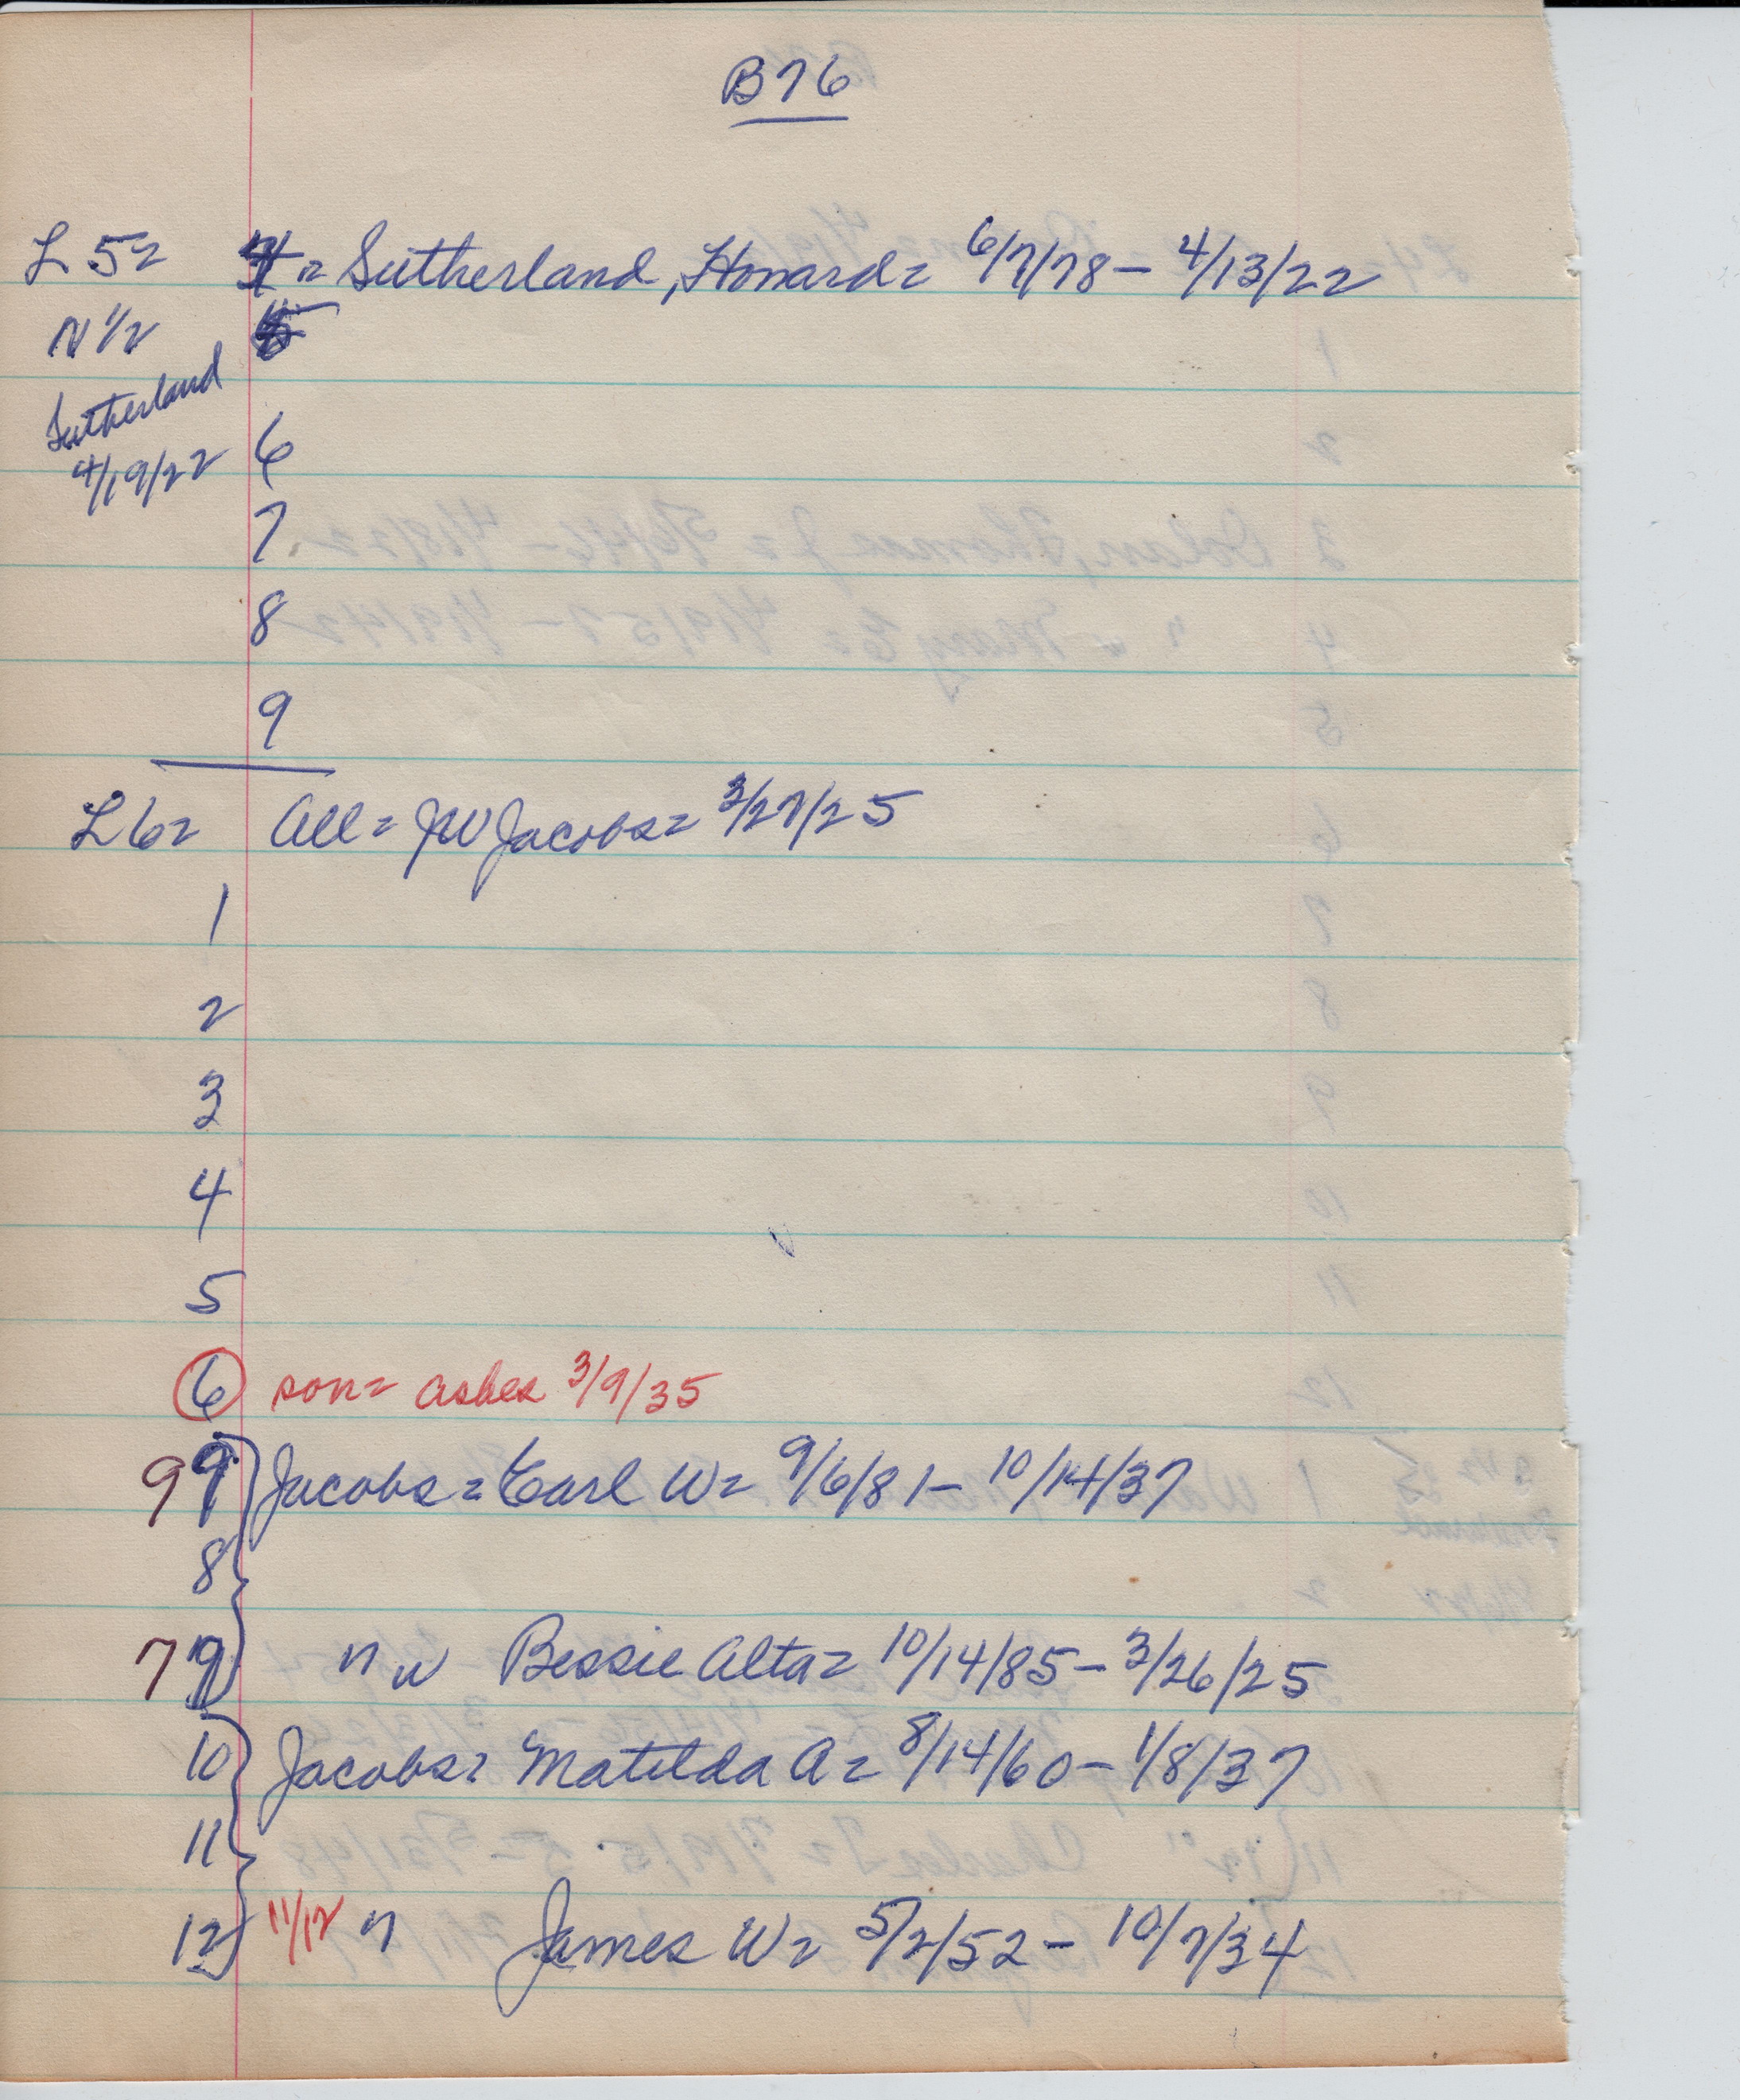 B76
L 5= 4 = Sutherland, Howard = 6/7/78 - 4/13/22
N 1/2 5
Sutherland
4/19/22 6
7
8
9
L 6= All = JW Jacobs = 3/27/25
1
2
3
4
5
6 son = ashes 3/9/35
9 9 Jacobs = Earl W = 9/6/81 - 10/14/37
8
7 9 " " Bessie Alta = 10/14/85 - 3/26/25
10 Jacobs = Matilda A = 8/14/60 - 1/8/37
11
12 11/12 " James W = 5/2/52 - 10/7/34